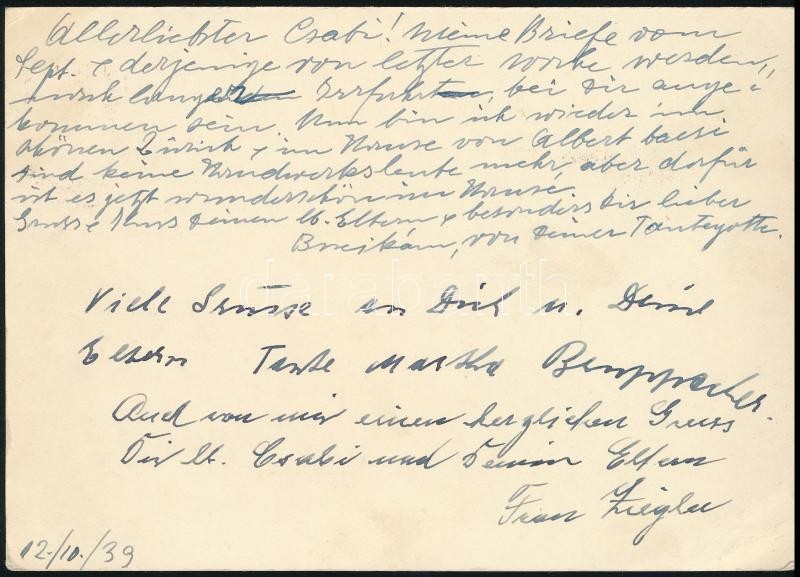 Allerliebster Csabi! Meine Briefe vom
Sept. & derjenige von letzter Woche werden,
nach langer Irrfahrt, bei Dir ange-
kommen sein. Nun bin ich wieder im
schönen Zürich & im Hause von Albert bacsi
sind keine Handwerksleute mehr, aber dafür
ist es jetzt wunderschön im Hause.
Gruss & Kuss Deinen lb. Eltern & besonders Dir lieber
von Deiner Tante
darabanth
Viele Grüsse an Dich u. Deine
Eltern Tante Martha
Auch von mir einen herzlichen Gruss
Dir lb. Csabi und Deinen Eltern
Frau Ziegler
12./10./39